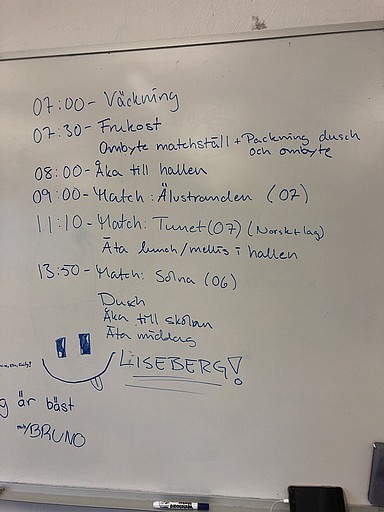 07:00 - Väckning
07:30 - Frukost
Ombyte matchställ + Packning dusch
och ombyte
08:00 - Åka till hallen
09:00 - Match: Älvstranden (07)
11:10 - Match: Tunet (07) (Norskt lag)
Äta lunch/mellis i hallen
13:50 - Match: Solna (06)
Dusch
Åka till skolan
Äta middag
LISEBERG!
g är bäst
BRUNO